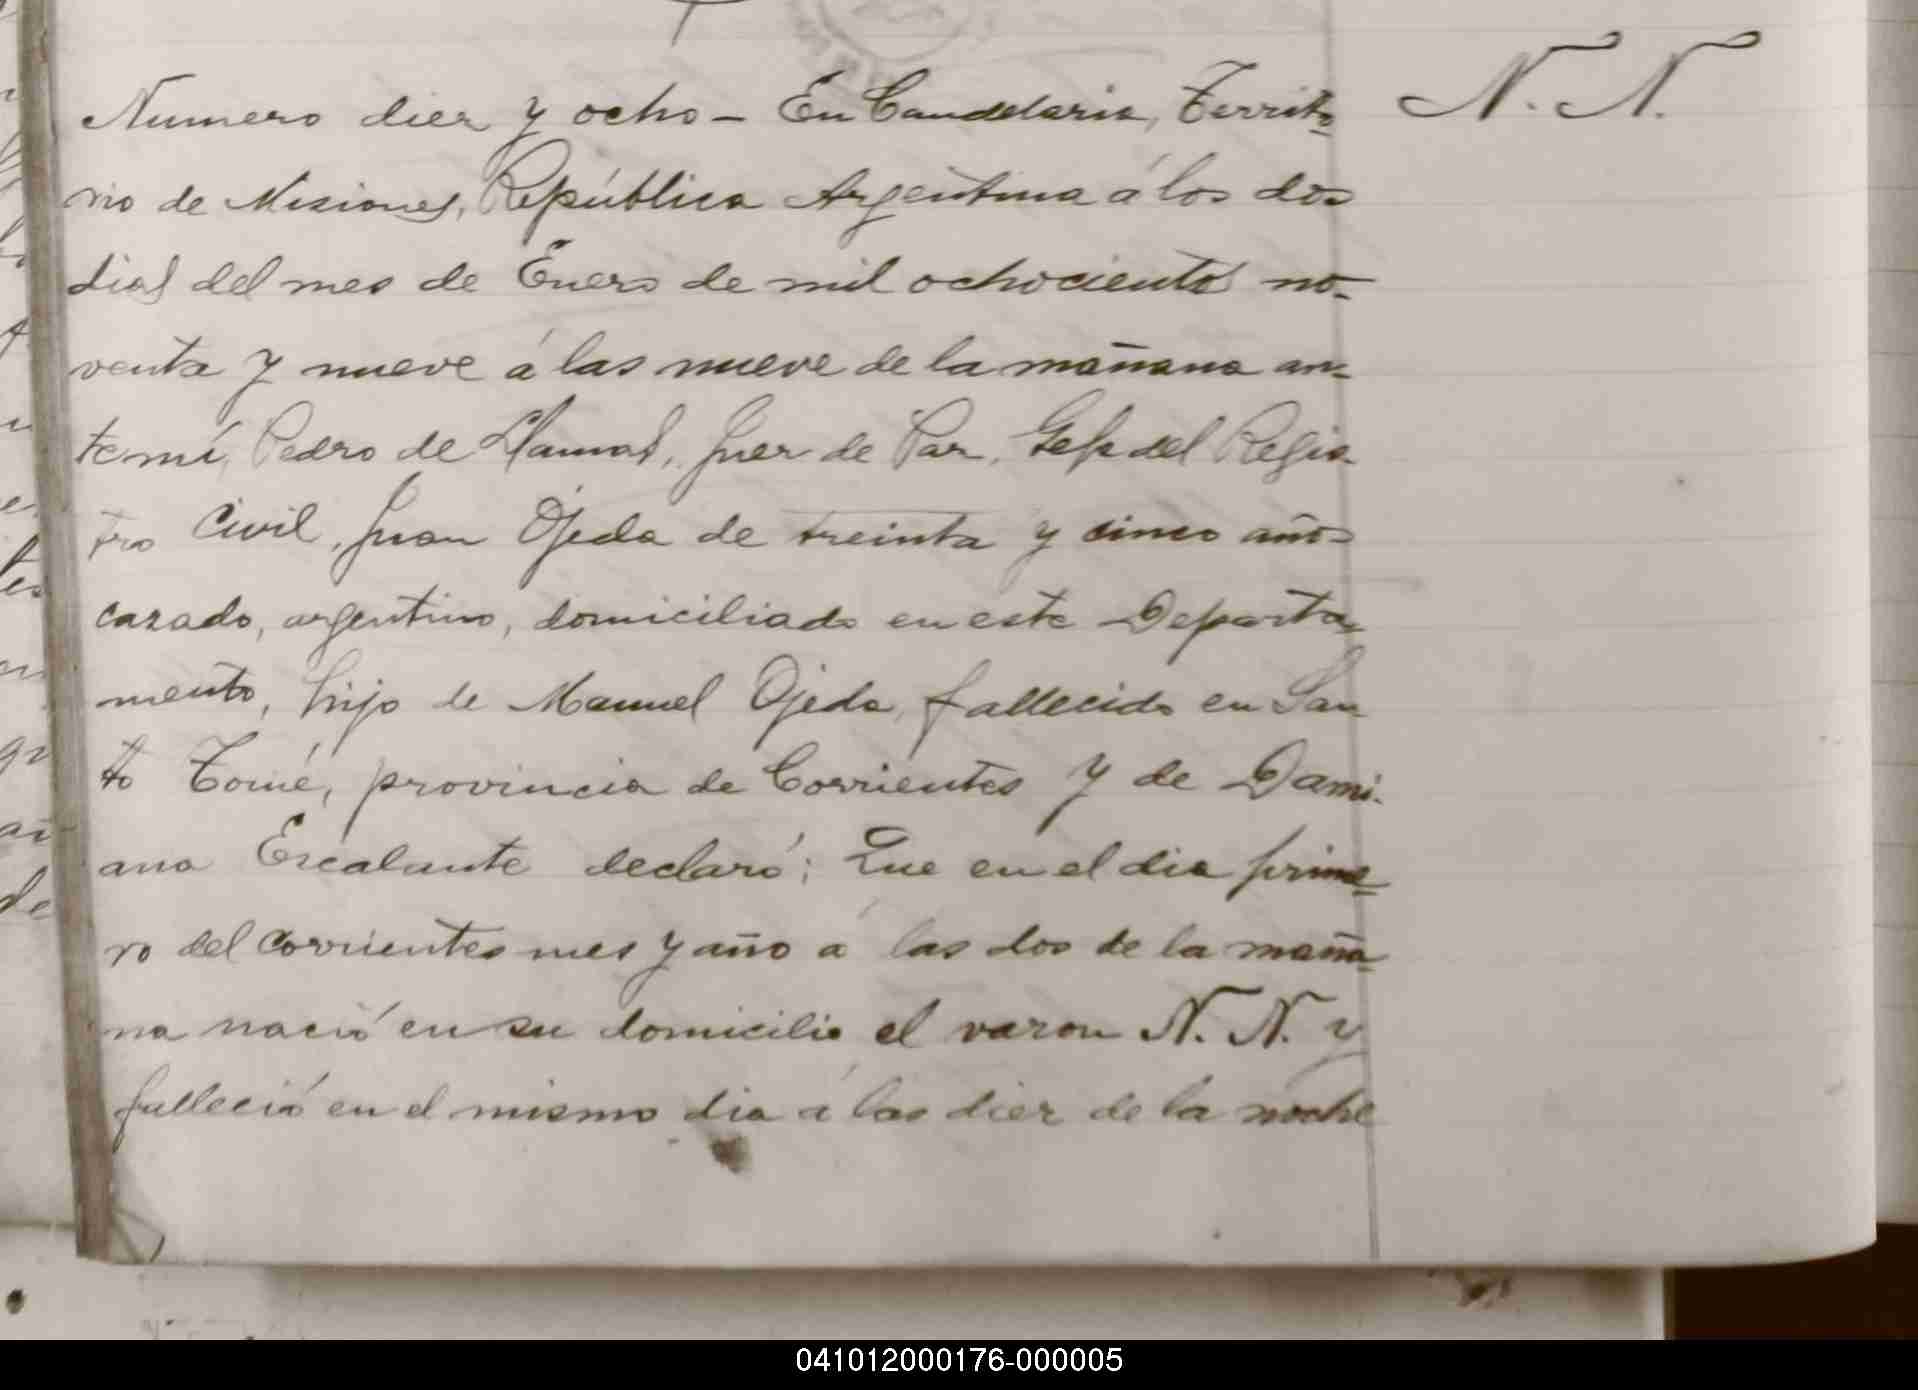 Numero diez y ocho – En Candelaria, Territo-
rio de Misiones, República Argentina á los dos
dias del mes de Enero de mil ochocientos no-
venta y nueve á las nueve de la mañana an-
te mí, Pedro de Llamas, Juez de Paz, Gefe del Regis-
tro Civil, Juan Ojeda de treinta y cinco años
cazado, argentino, domiciliado en este Departa-
mento, hijo de Manuel Ojeda, fallecido en San-
to Tomé, provincia de Corrientes y de Dami-
ana Escalante declaró: Que en el dia prime-
ro del corrientes mes y año á las dos de la maña-
na nació en su domicilio el varon N. N. y
falleció en el mismo dia á las diez de la noche
N. N.
041012000176-000005